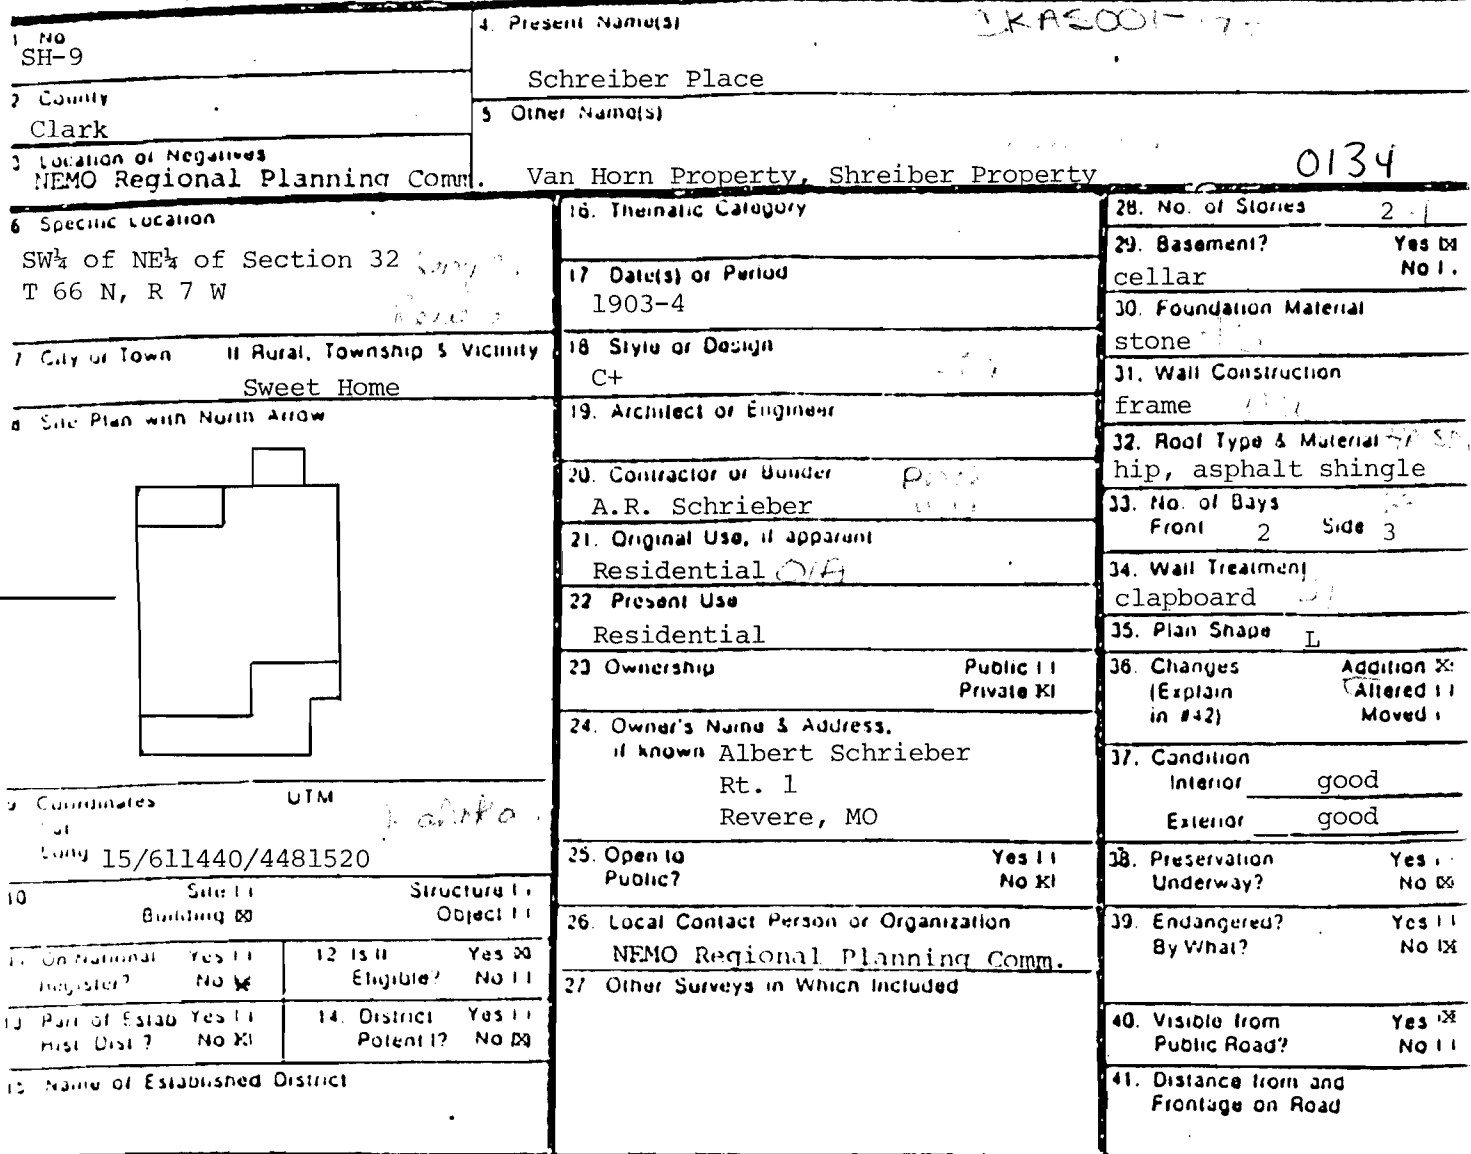 1 No
SH-9
2 County
Clark
3 Location of Negatives
NEMO Regional Planning Comm.
4. Present Name(s)
Schreiber Place
5 Other Name(s)
Van Horn Property, Shreiber Property
0134
6 Specific Location
SW¼ of NE¼ of Section 32
T 66 N, R 7 W
7 City or Town If Rural, Township & Vicinity
Sweet Home
8 Site Plan with North Arrow
9 Coordinates UTM
Lat
Long 15/611440/4481520
10 Site [ ] Structure [ ]
Building [X] Object [ ]
11 On National Yes [ ]
Register? No [X]
12 Is It Yes [X]
Eligible? No [ ]
13 Part of Estab Yes [ ]
Hist Dist? No [X]
14. District Yes [ ]
Potent'l? No [X]
15 Name of Established District
16. Thematic Category
17 Date(s) or Period
1903-4
18 Style or Design
C+
19. Architect or Engineer
20. Contractor or Builder
A.R. Schrieber
21. Original Use, if apparent
Residential
22 Present Use
Residential
23 Ownership Public [ ]
Private [X]
24. Owner's Name & Address,
if known Albert Schrieber
Rt. 1
Revere, MO
25. Open to Yes [ ]
Public? No [X]
26. Local Contact Person or Organization
NEMO Regional Planning Comm.
27 Other Surveys in Which Included
28. No. of Stories 2
29. Basement? Yes [X]
cellar No [ ]
30. Foundation Material
stone
31. Wall Construction
frame
32. Roof Type & Material
hip, asphalt shingle
33. No. of Bays
Front 2 Side 3
34. Wall Treatment
clapboard
35. Plan Shape L
36. Changes Addition [X]
(Explain Altered [ ]
in #42) Moved [ ]
37. Condition
Interior good
Exterior good
38. Preservation Yes [ ]
Underway? No [X]
39. Endangered? Yes [ ]
By What? No [X]
40. Visible from Yes [X]
Public Road? No [ ]
41. Distance from and
Frontage on Road